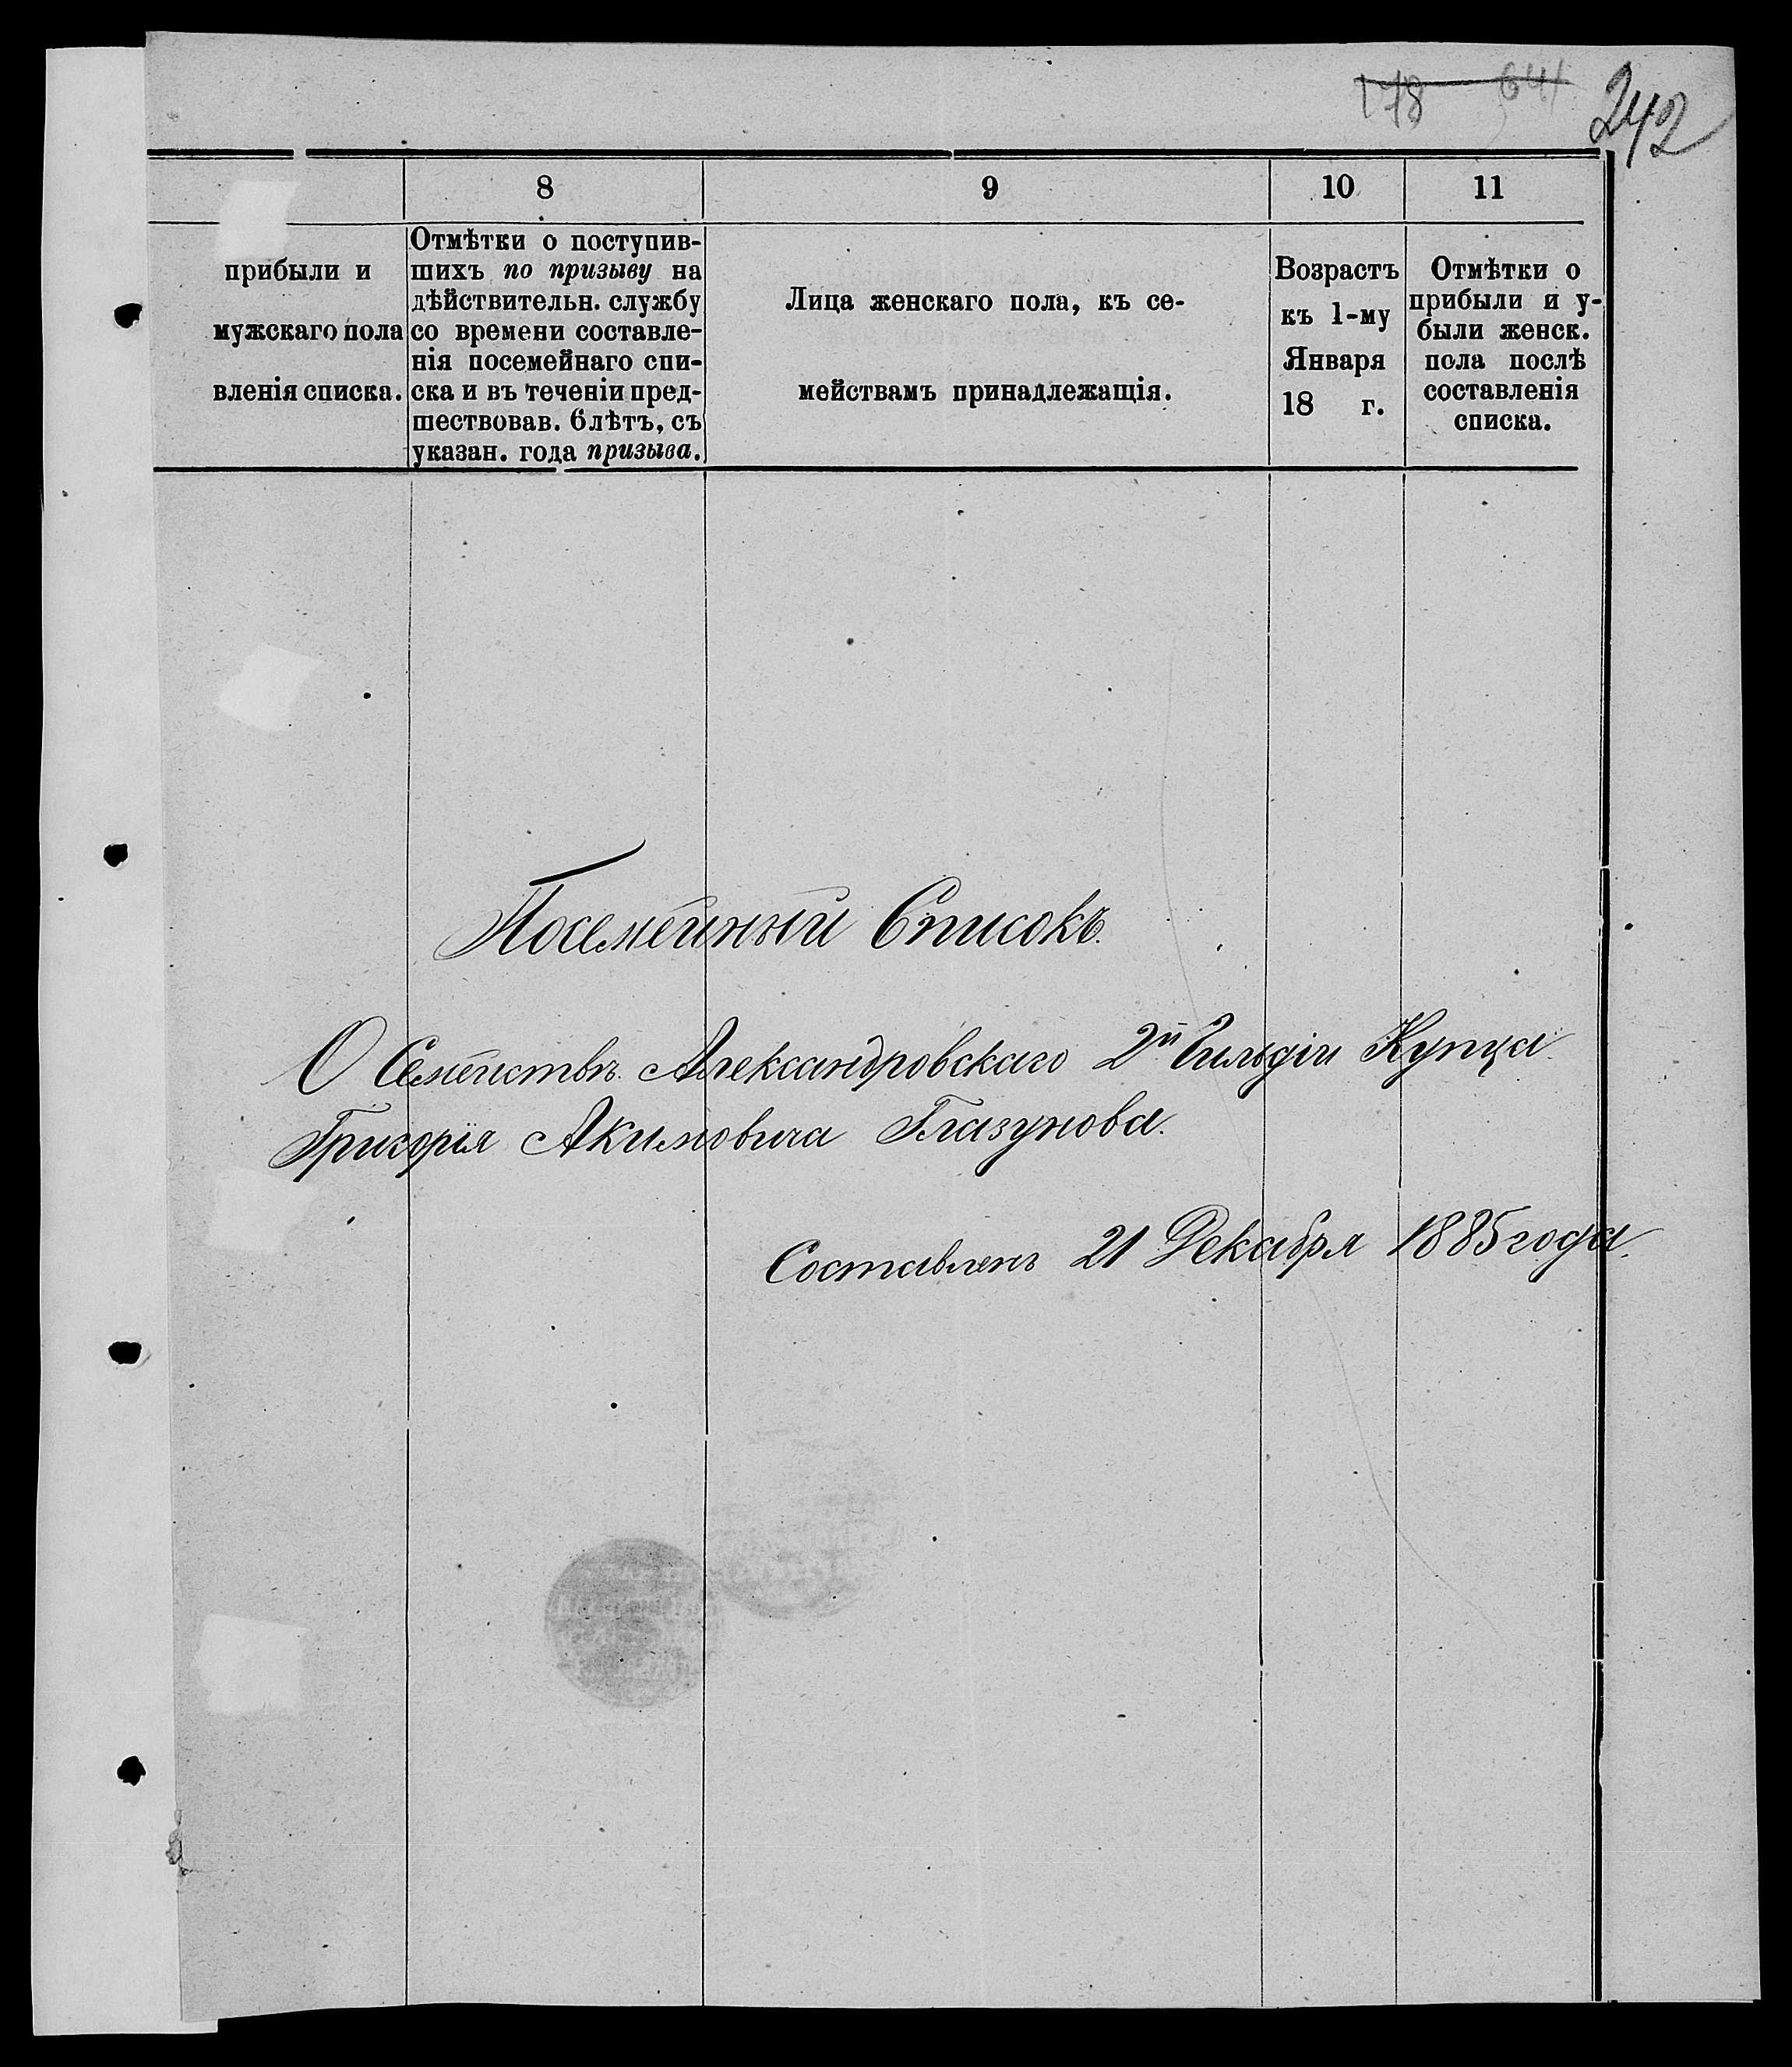 178 641
242
8 9 10 11
прибыли и
мужскаго пола
вленія списка.
Отмѣтки о поступив-
шихъ по призыву на
дѣйствительн. службу
со времени составле-
нія посемейнаго спи-
ска и въ теченіи пред-
шествовав. 6 лѣтъ, съ
указан. года призыва.
Лица женскаго пола, къ се-
мействамъ принадлежащія.
Возрастъ
къ 1-му
Января
18 г.
Отмѣтки о
прибыли и у-
были женск.
пола послѣ
составленія
списка.
Посемейный Списокъ.
О Семействѣ Александровскаго 2й Гильдіи Купца
Григорія Акимовича Глазунова.
Составленъ 21 Декабря 1885 года.